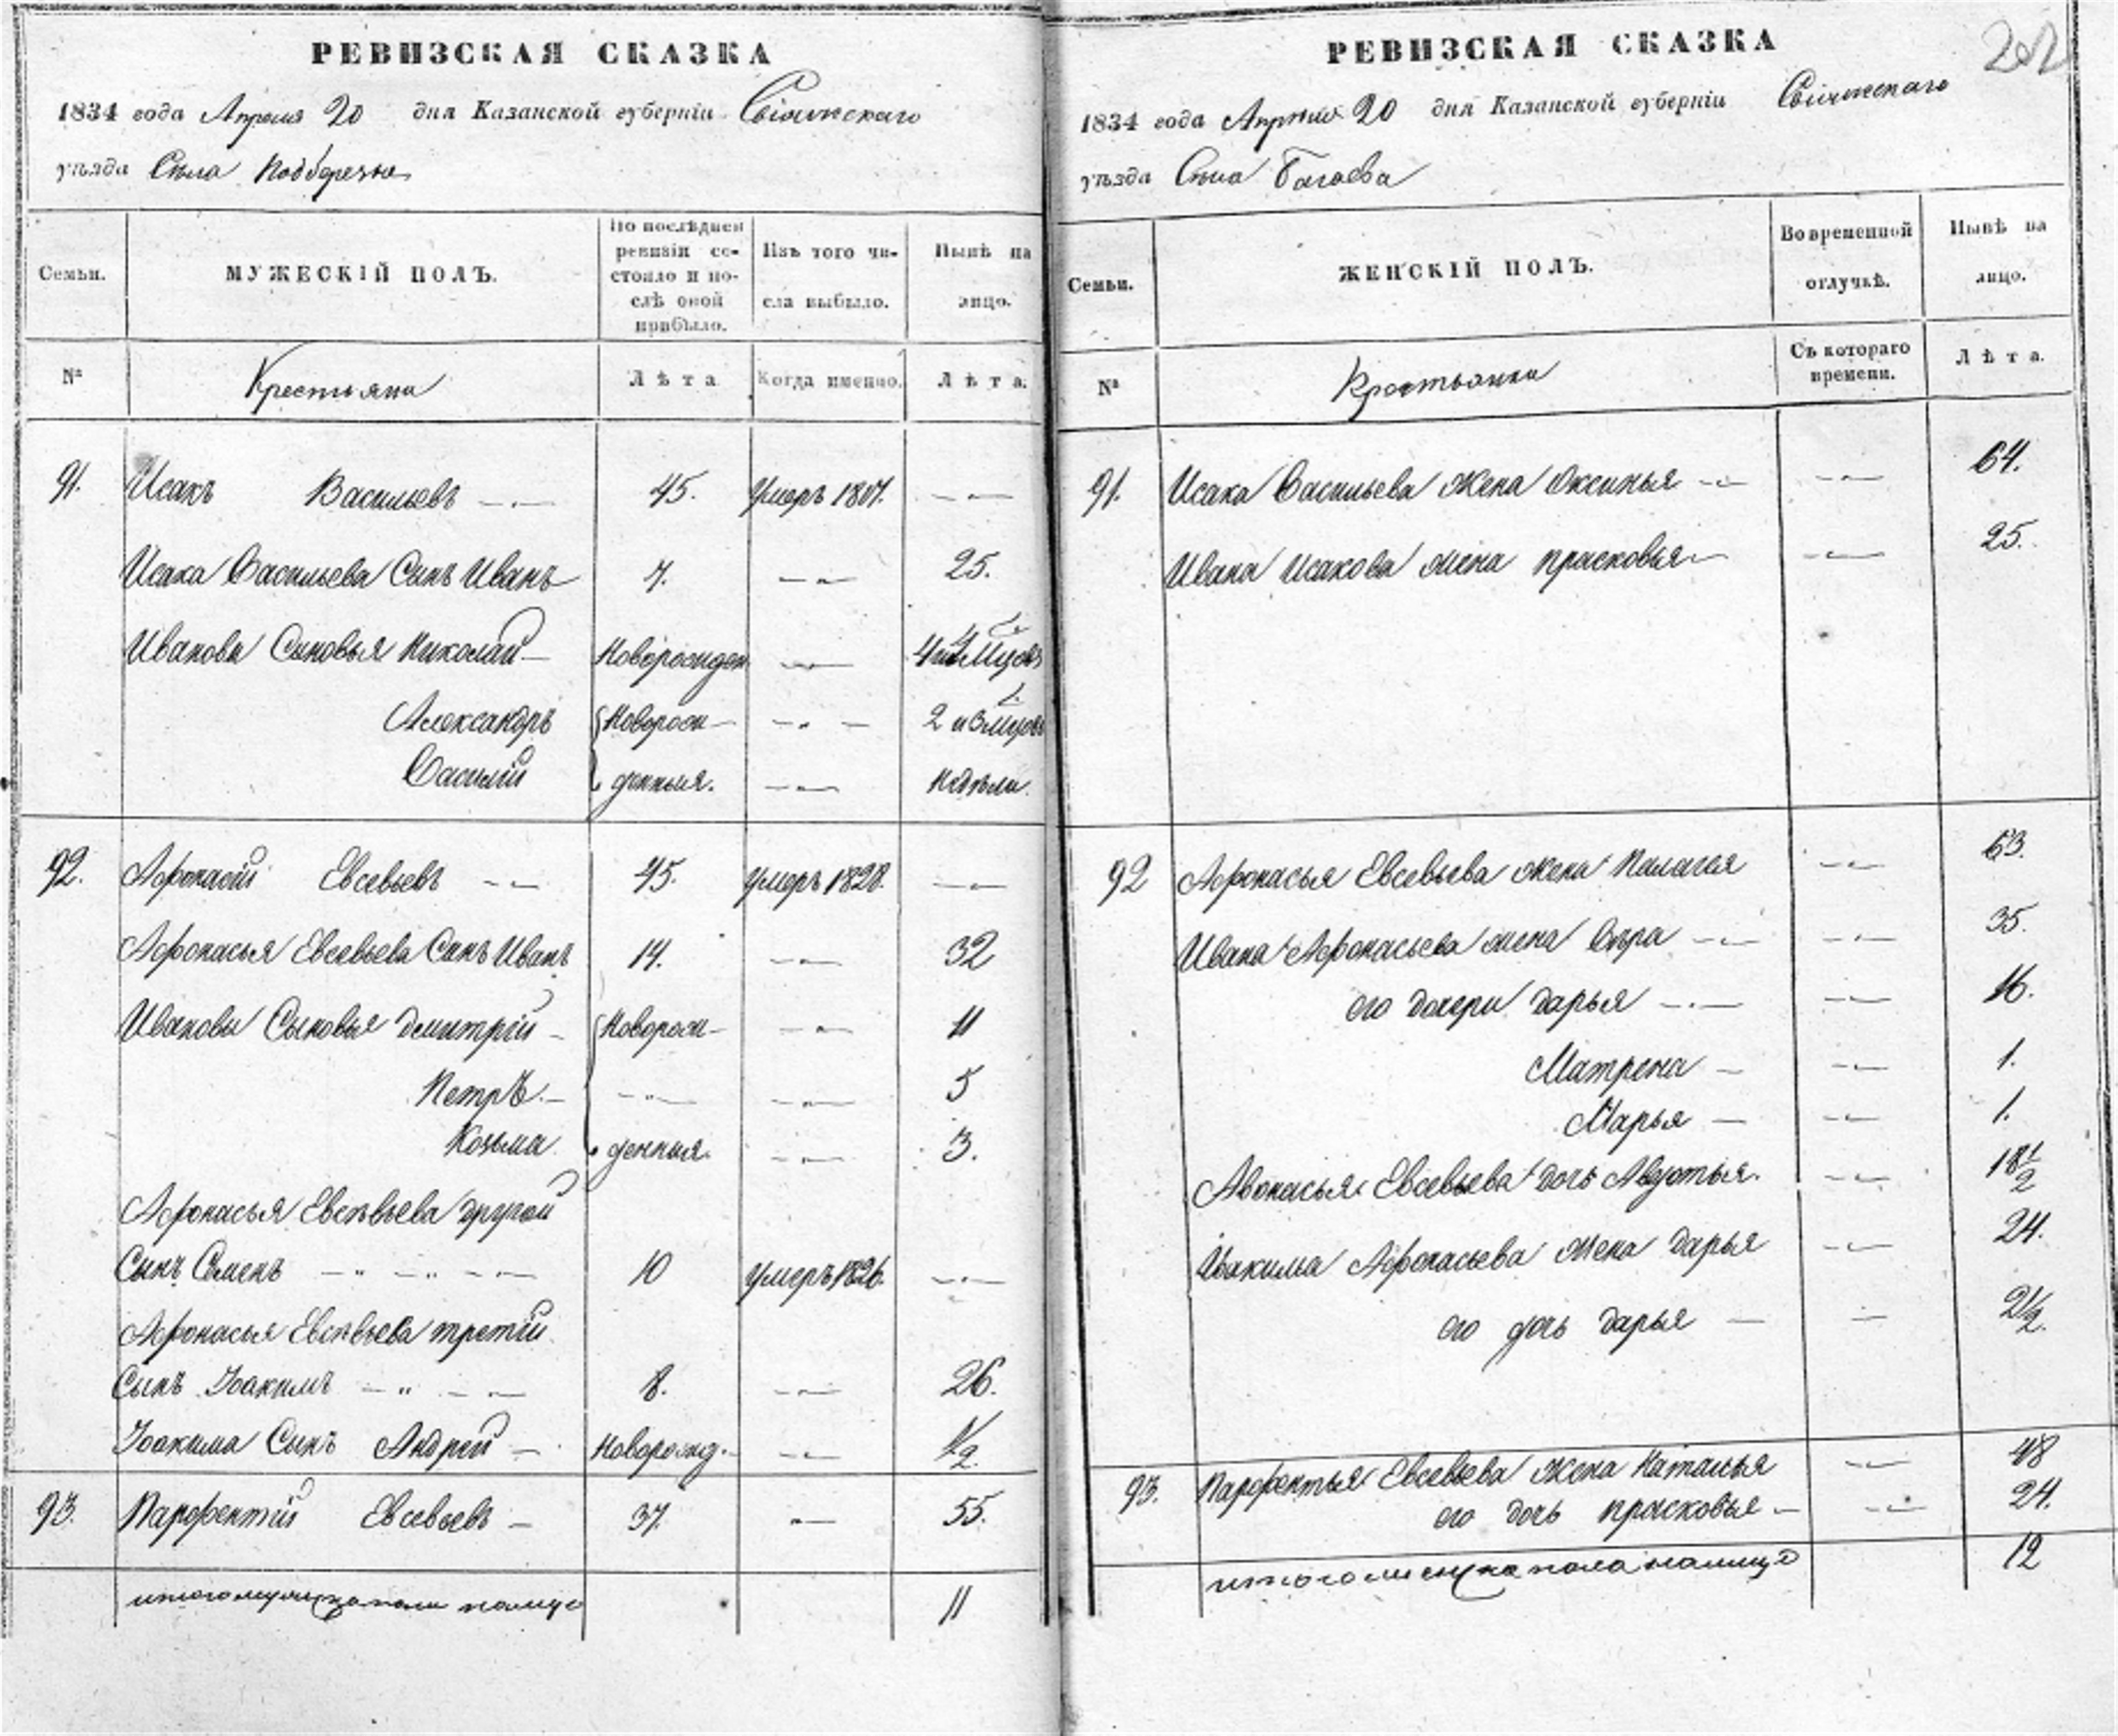 РЕВИЗСКАЯ СКАЗКА
1834 года Апреля 20 дня Казанской губерніи Свіяжскаго
уѣзда Села Подберезья
Семьи.
МУЖЕСКІЙ ПОЛЪ.
По послѣдней ревизіи со-
стояло и по-
слѣ оной
прибыло.
Изъ того чи-
сла выбыло.
Нынѣ на
лицо.
№
Крестьяна
Лѣта
Когда именно.
Лѣта.
91. Исакъ Васильевъ 45. умеръ 1807.
Исака Васильева Сынъ Иванъ 7. 25.
Ивановы Сыновья Николай Новорожден
Александръ Новорож-
Василій денныя. недели
92. Афонасій Евсевьевъ 45. умеръ 1828.
Афонасья Евсевьева Сынъ Иванъ 14. 32
Ивановы Сыновья Дмитрій Новорож- 11
Петръ 5
Козьма денныя. 3.
Афонасья Евсевьева другой
Сынъ Семенъ 10 умеръ 1826.
Афонасья Евсевьева третій
Сынъ Іоакимъ 8. 26.
Іоакима Сынъ Андрей Новорожд. 1/2
93. Парфентій Евсевьевъ 37. 55.
11
202
РЕВИЗСКАЯ СКАЗКА
1834 года Апреля 20 дня Казанской губерніи Свіяжскаго
уѣзда Села
Семьи.
ЖЕНСКІЙ ПОЛЪ.
Во временной
отлучкѣ.
Нынѣ на
лицо.
№
Крестьянки
Съ котораго
времени.
Лѣта.
91. Исака Васильева жена Оксинья 64.
Ивана Исакова жена Прасковья 25.
92 Афонасья Евсевьева жена Палагея 63.
Ивана Афонасьева жена Вѣра 35.
его дочери Дарья 16.
Матрена 1.
Марья 1.
Авонасья Евсевьева дочь Авдотья. 18 1/2
Иоакима Афонасьева жена Дарья 24.
его дочь Дарья 2 1/2.
93. Парфентья Евсевьева жена Наталья 48
его дочь Прасковья 24.
12